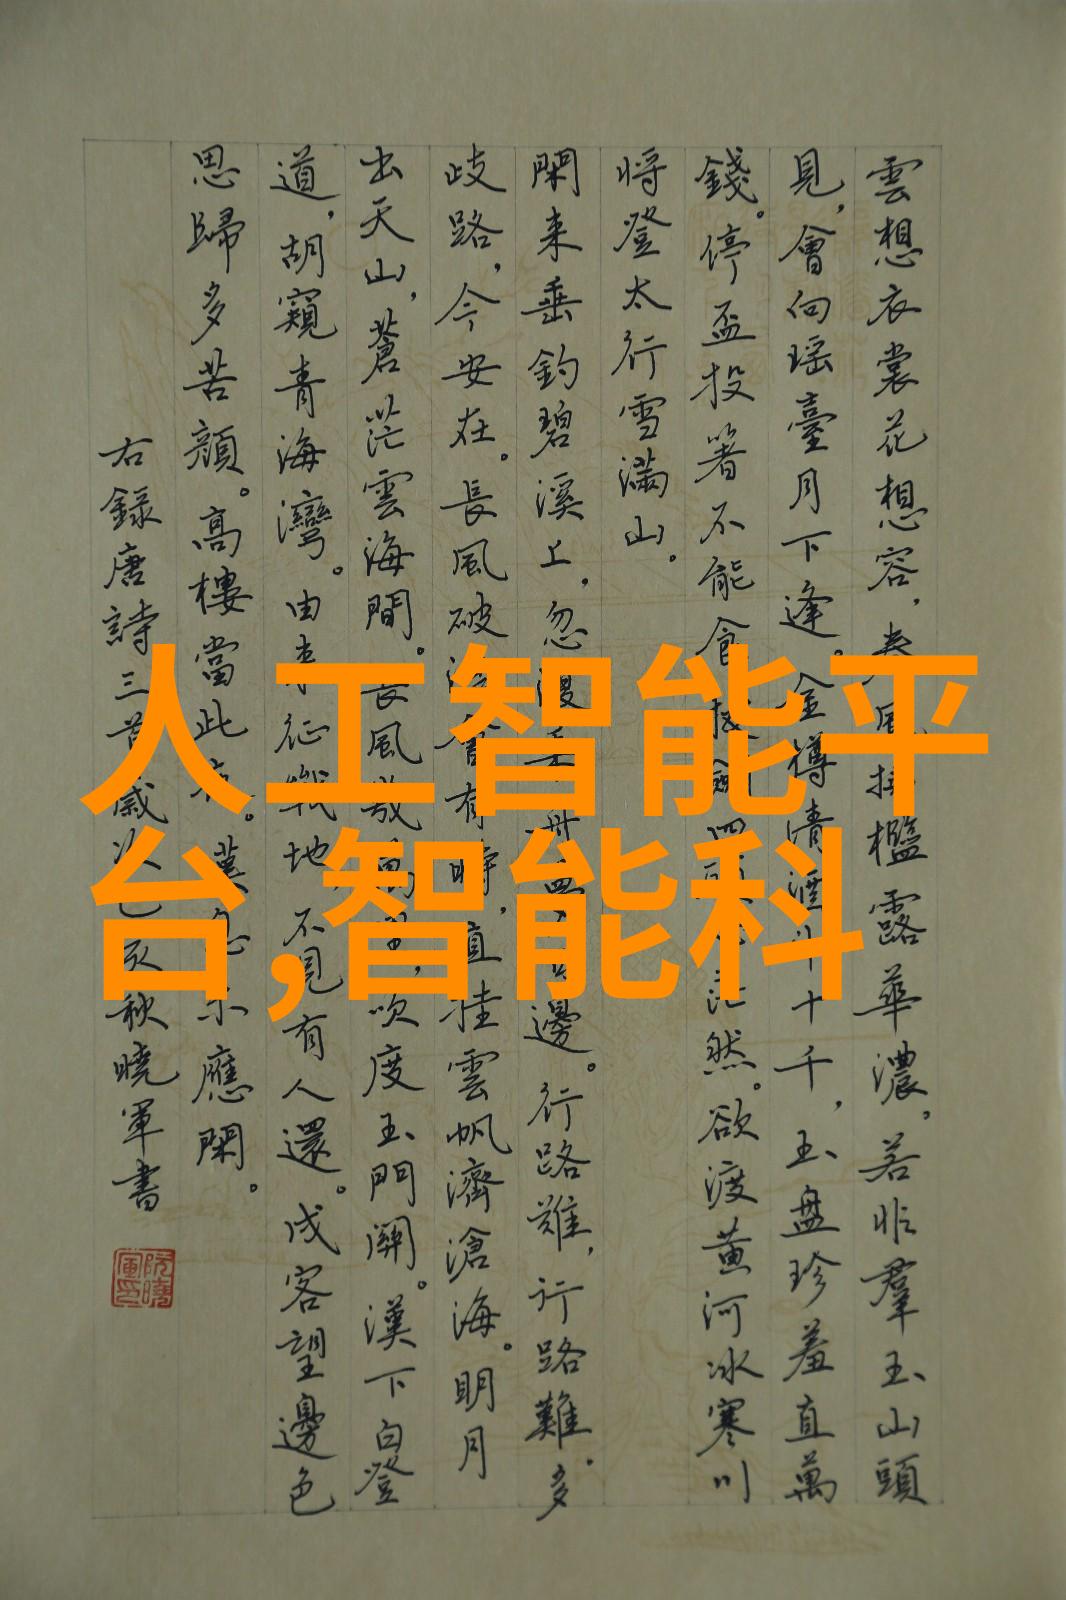 雲想衣裳花想容，春風拂檻露華濃，若非羣玉山頭
見，會向瑶臺月下逢。金樽清酒斗十千，玉盤珍羞直萬
錢。停盃投箸不能食拔劍四顧心茫然。欲渡黄河冰寒川
将登太行雪滿山。
閑来垂釣碧溪上，忽復乘舟夢日邊。行路難，行路難。多
歧路，今安在。長風破浪會有時，直挂雲帆濟滄海。明月
出天山，蒼茫雲海間。長風幾萬里，吹度玉門關。漢下白登
道，胡窺青海灣。由来征戰地不見有人還。戍客望邊色
思歸多苦顔。高樓當此夜。嘆息未應閑。
右録唐詩三首歲次己亥秋曉軍書
阮曉軍印
人工智能平
台,智能科